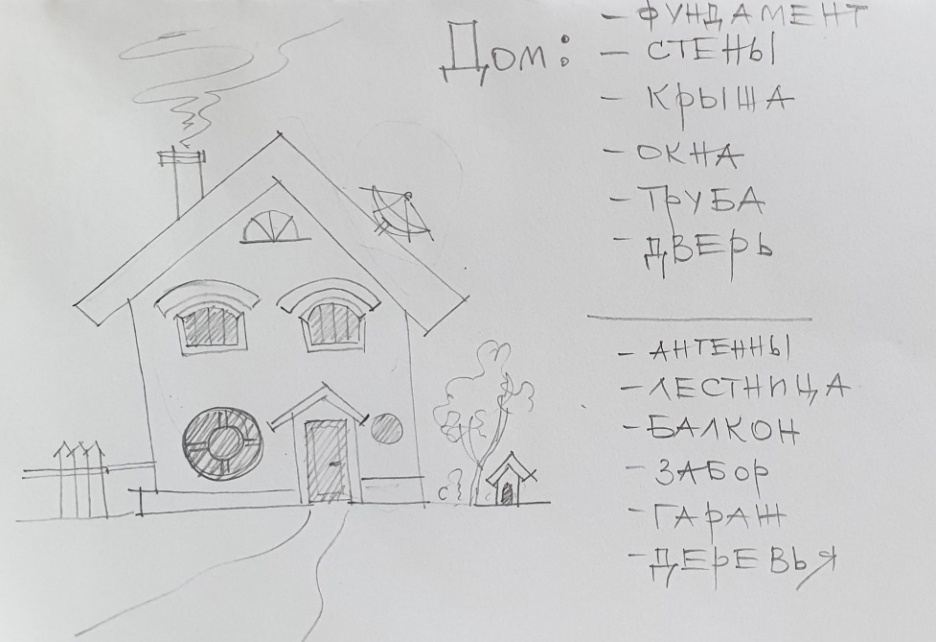 Дом:
- ФУНДАМЕНТ
- СТЕНЫ
- КРЫША
- ОКНА
- ТРУБА
- ДВЕРЬ
- АНТЕННЫ
- ЛЕСТНИЦА
- БАЛКОН
- ЗАБОР
- ГАРАЖ
- ДЕРЕВЬЯ